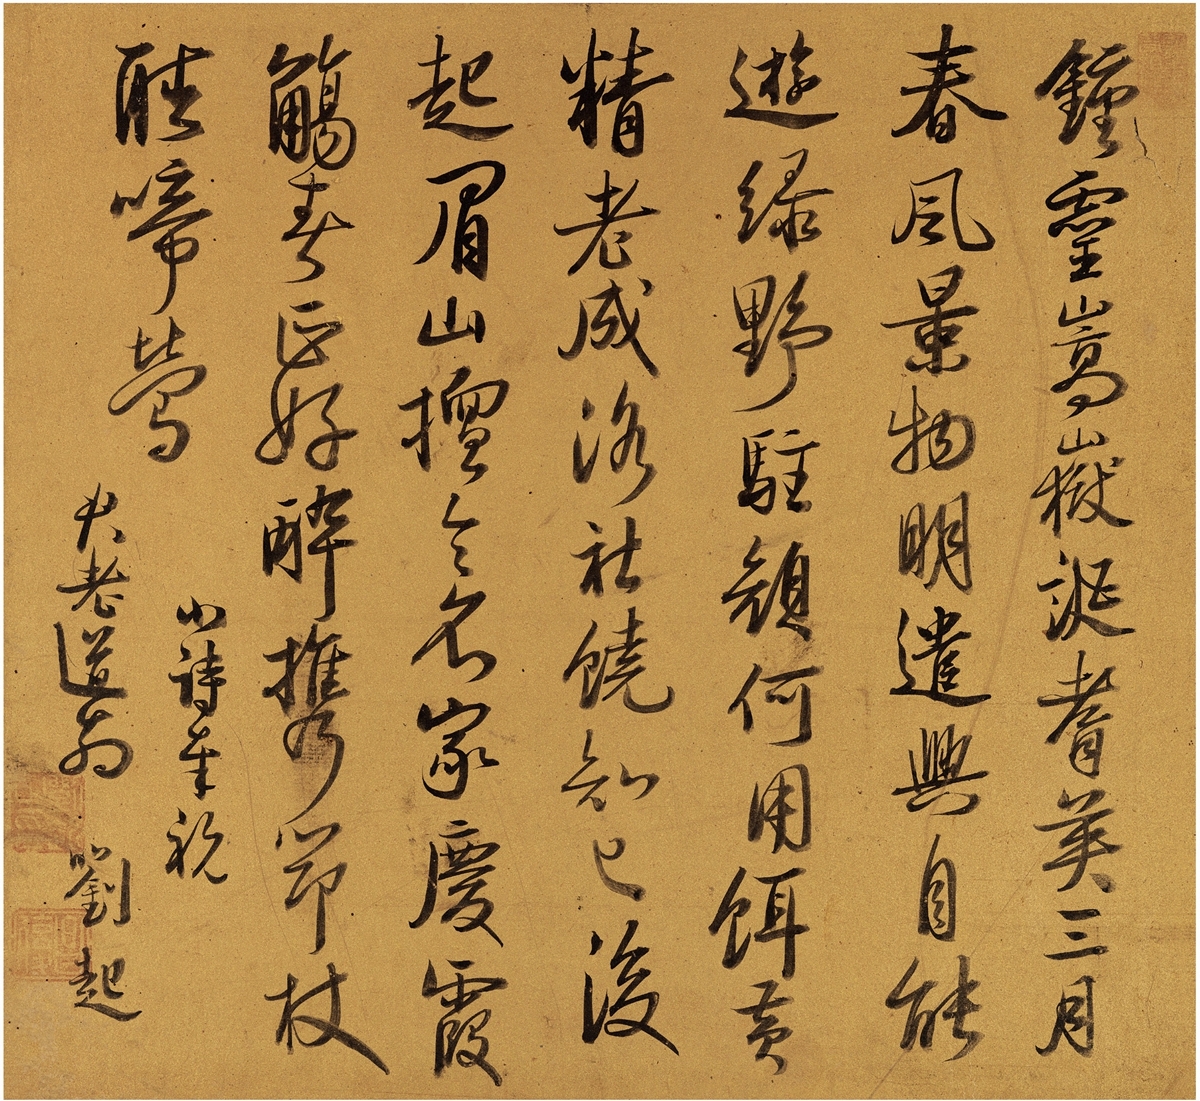 鍾靈嵩嶽誕耆英三月
春風景物明遣興自能
遊綠野駐顏何用餌黃
精老成洛社饒知己後
起眉山擅令名家慶霞
觴春正好醉攜笻杖
聽啼鶯
小詩奉祝
大老道翁 劉起